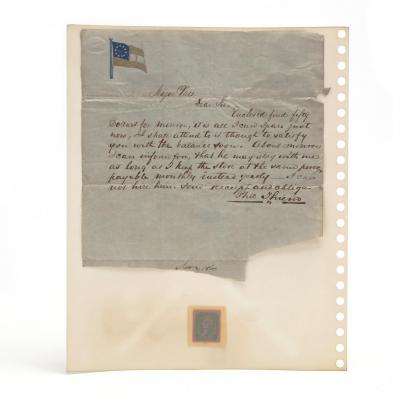 Major Place
Dear Sir
Enclosed find fifty
Dollars for it is all I can spare just
now, I shall attend to it though to satisfy
you with the balance soon. About
I can inform you, that he may stay with me
as long as I keep the store at the same
payable monthly instead yearly I can
not hire him. Send receipt and oblige
Phil Thieno